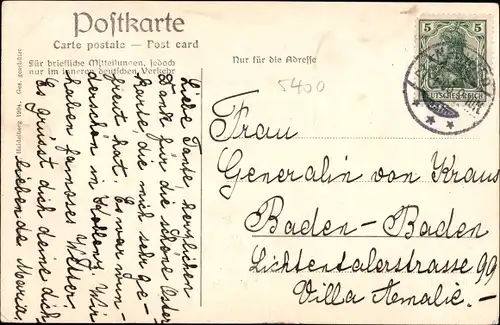 Postkarte
Carte postale — Post card
Für briefliche Mitteilungen, jedoch
nur im inneren deutschen Verkehr
Nur für die Adresse
5400
5 5
DEUTSCHES REICH
Heidelberg 1904. Ges. geschützt
Liebe Tante, herzlichen
Dank für die schöne Oster
karte, die mich sehr ge-
freut hat. Es war wun-
derschön in Wir
haben famoses Wetter.
Es grüsst dich deine dich
liebende Maria
Frau
Generalin von Kraus
Baden-Baden
Lichtentalerstrasse 99
Villa Amalie.—